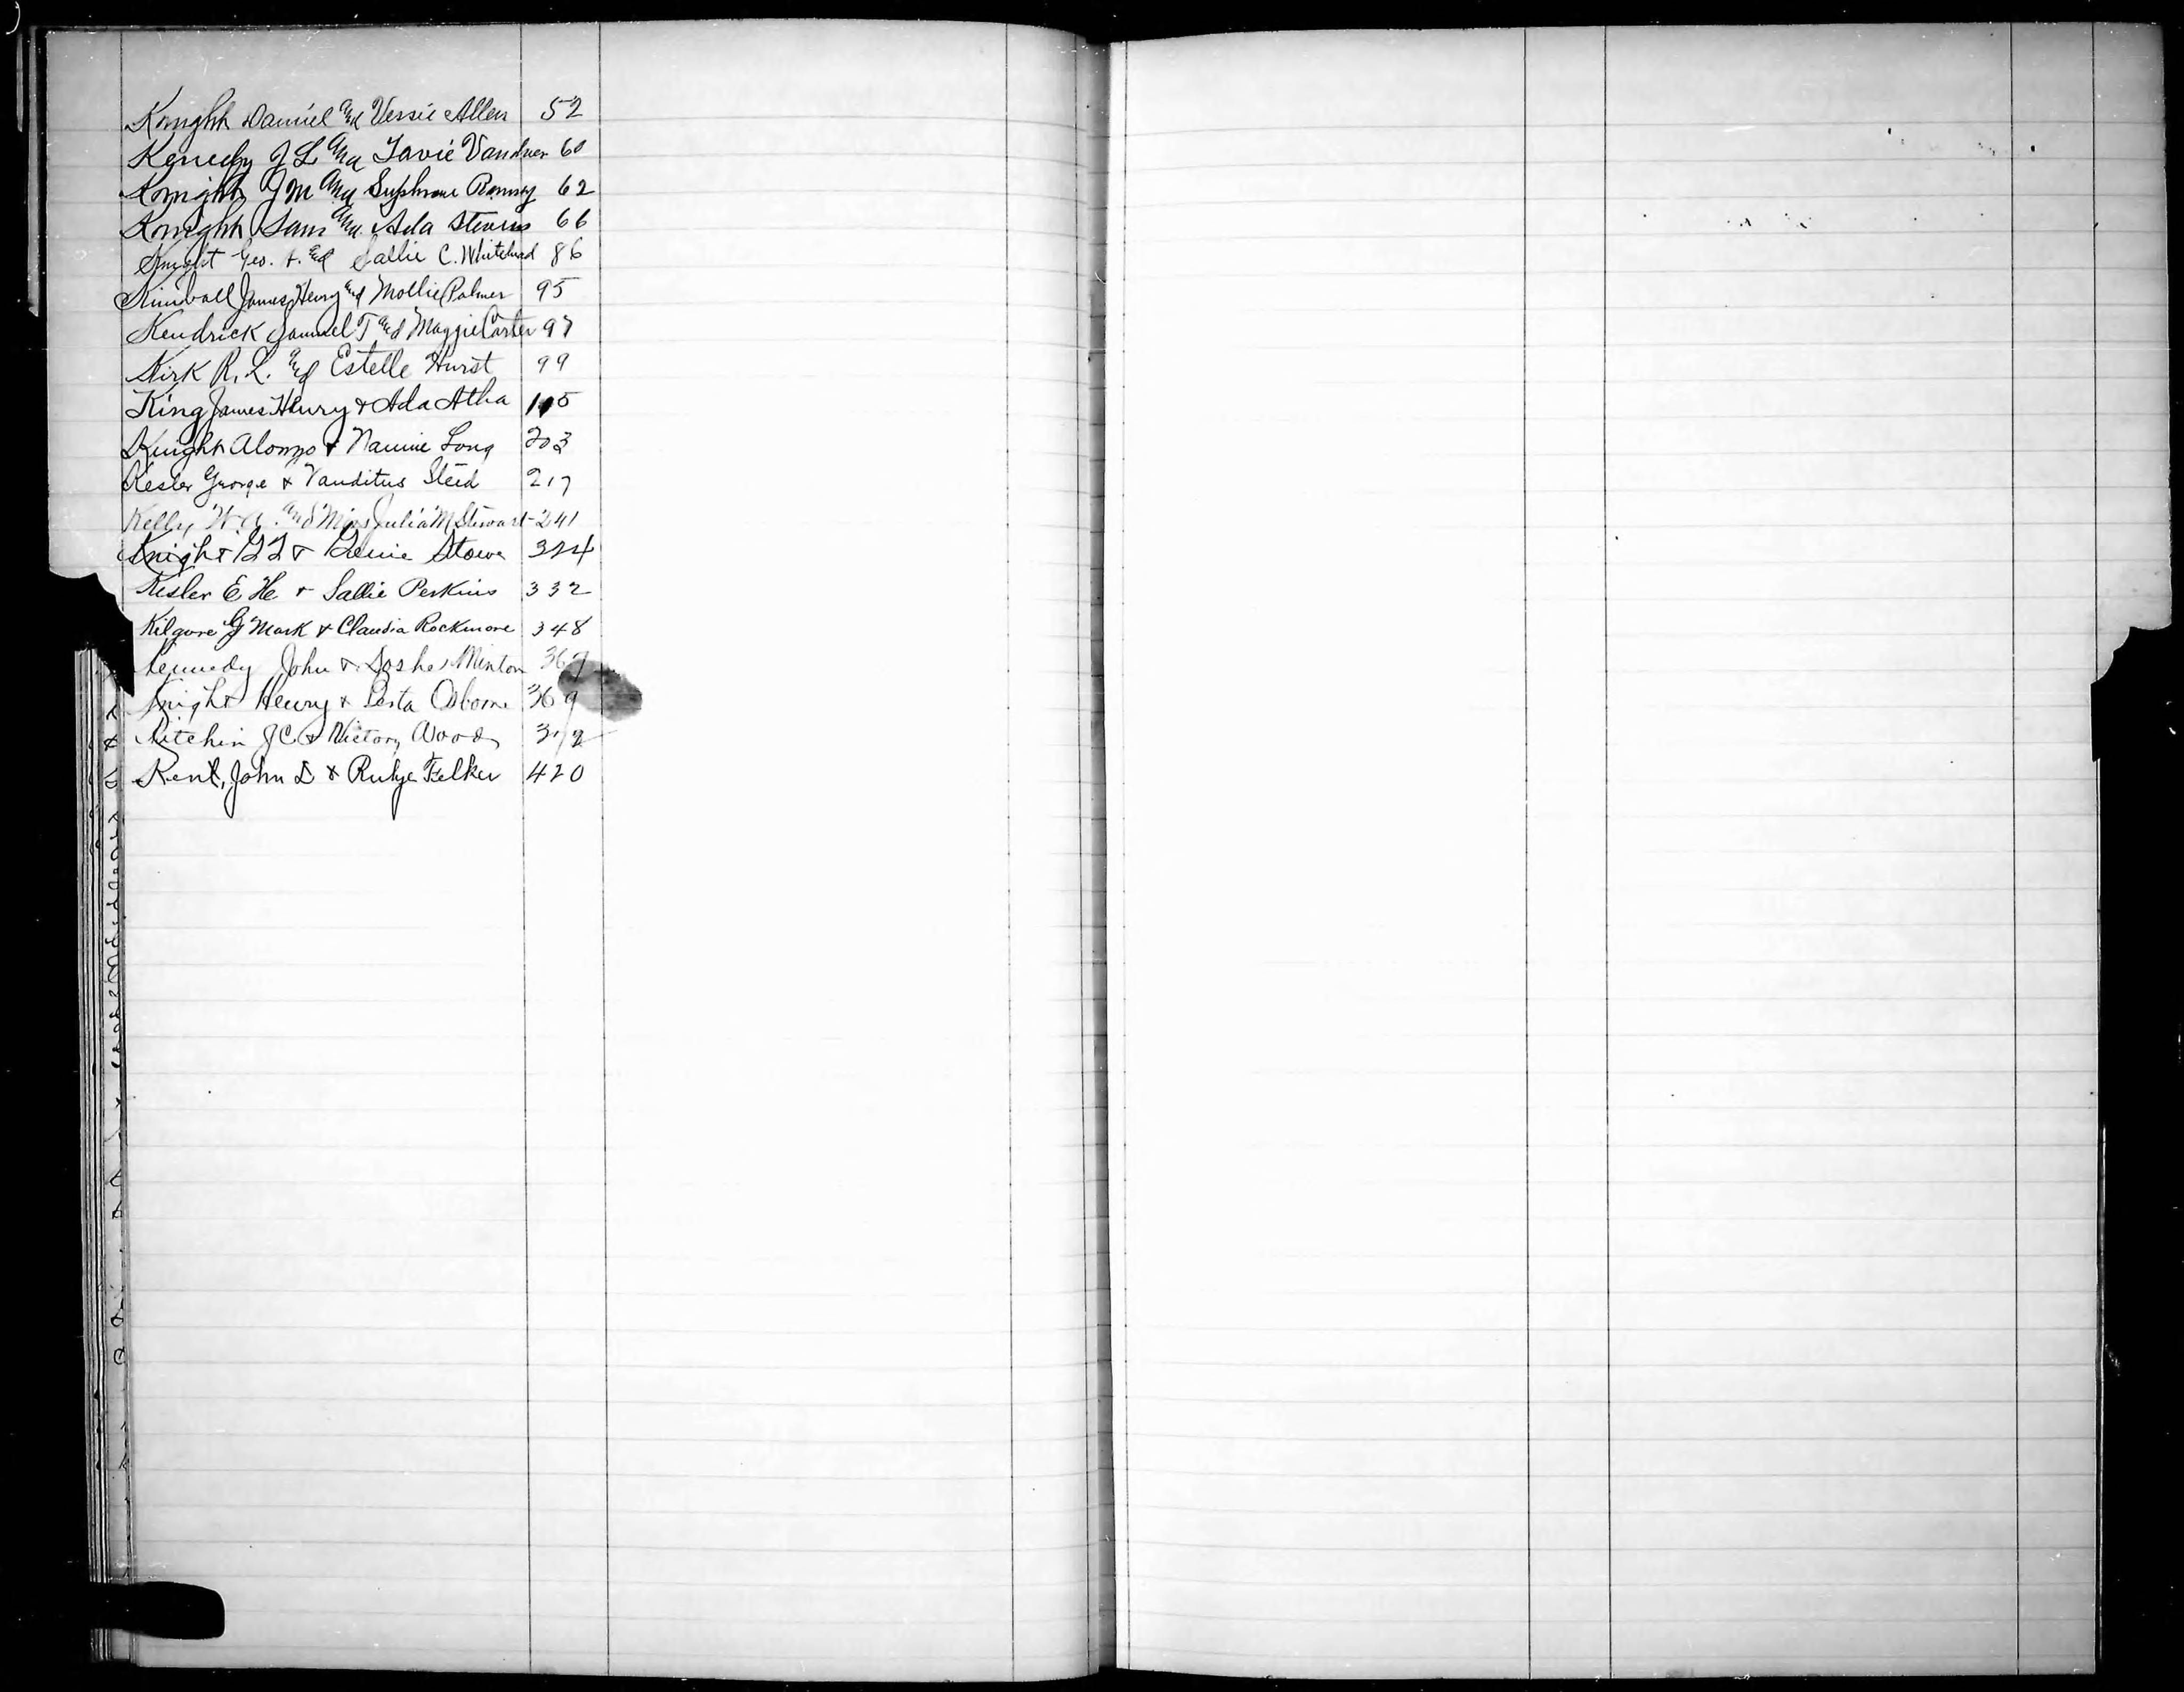 Knight Daniel and Versie Allen 52
Kenedy J L and Tavie Vandiver 60
Knight J M and Ramey 62
Knight Sam and Ada Stevens 66
Knight Geo. and Sallie C. Whitehead 86
Kimball James Henry and Mollie Palmer 95
Kendrick Samuel T and Maggie Carter 97
Kirk R. L. and Estelle Hurst 99
King James Henry & Ada Atha 105
Knight Alonzo & Nannie Long 203
Kesler George & Vanditus Steed 217
Kelly W. A. and Miss Julia M Stewart 241
Knight & Stowe 324
Kesler E H & Sallie Perkins 332
Kilgore G Mark & Claudia Rockmore 348
Kennedy John & Minton 367
Knight Henry & Osborne 369
Kitchin J C & Victory Woods
Kent, John L & Rubye Felker 420